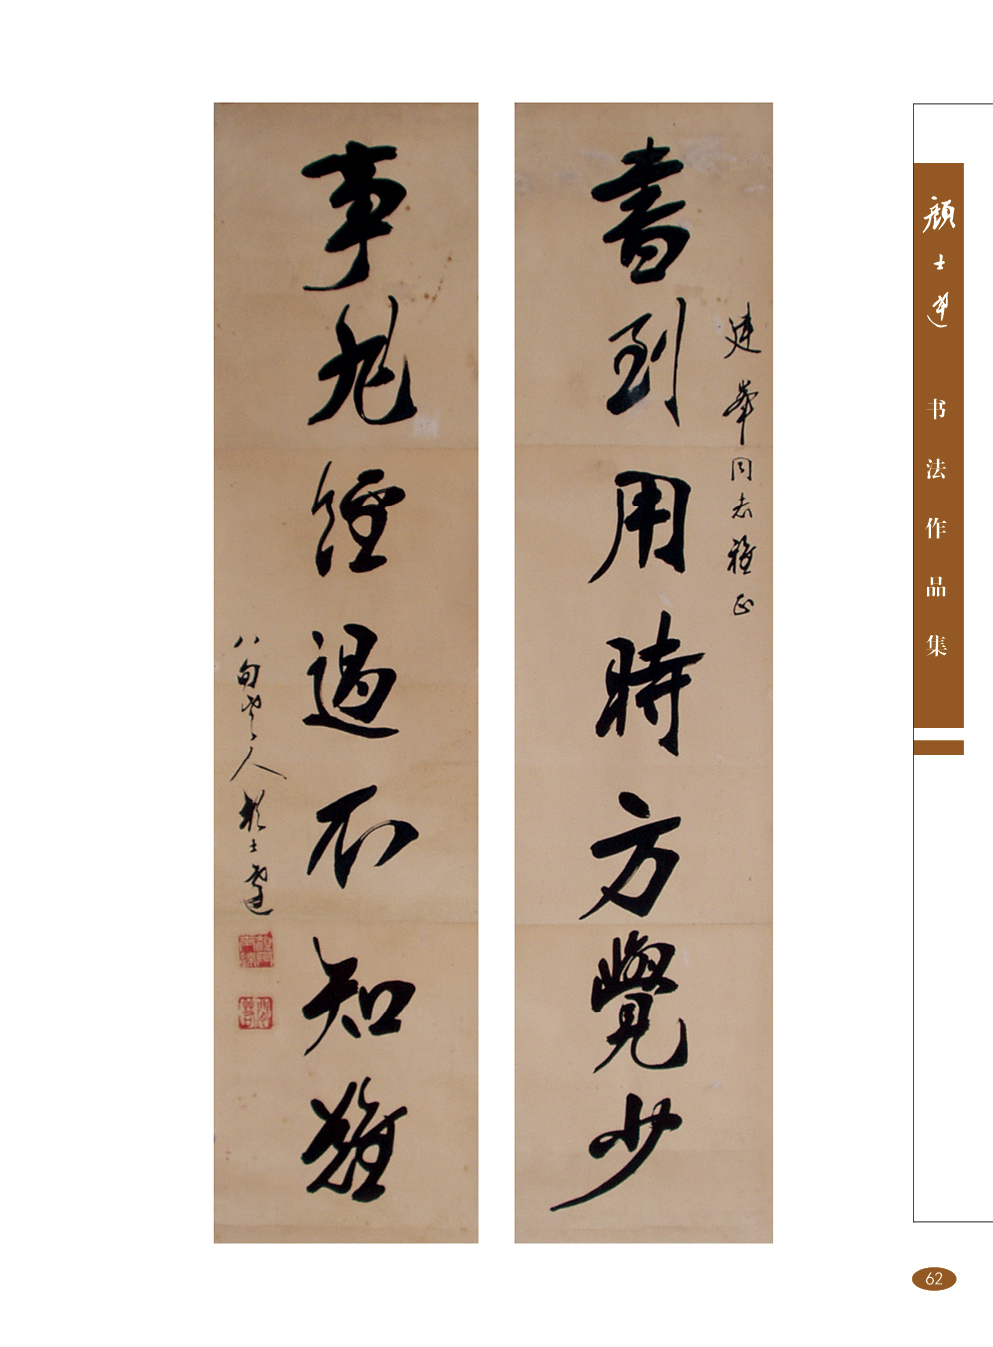 書到用時方覺少
建華同志雅正
事非經過不知難
八旬老人顏士達
顏士達
书法作品集
62